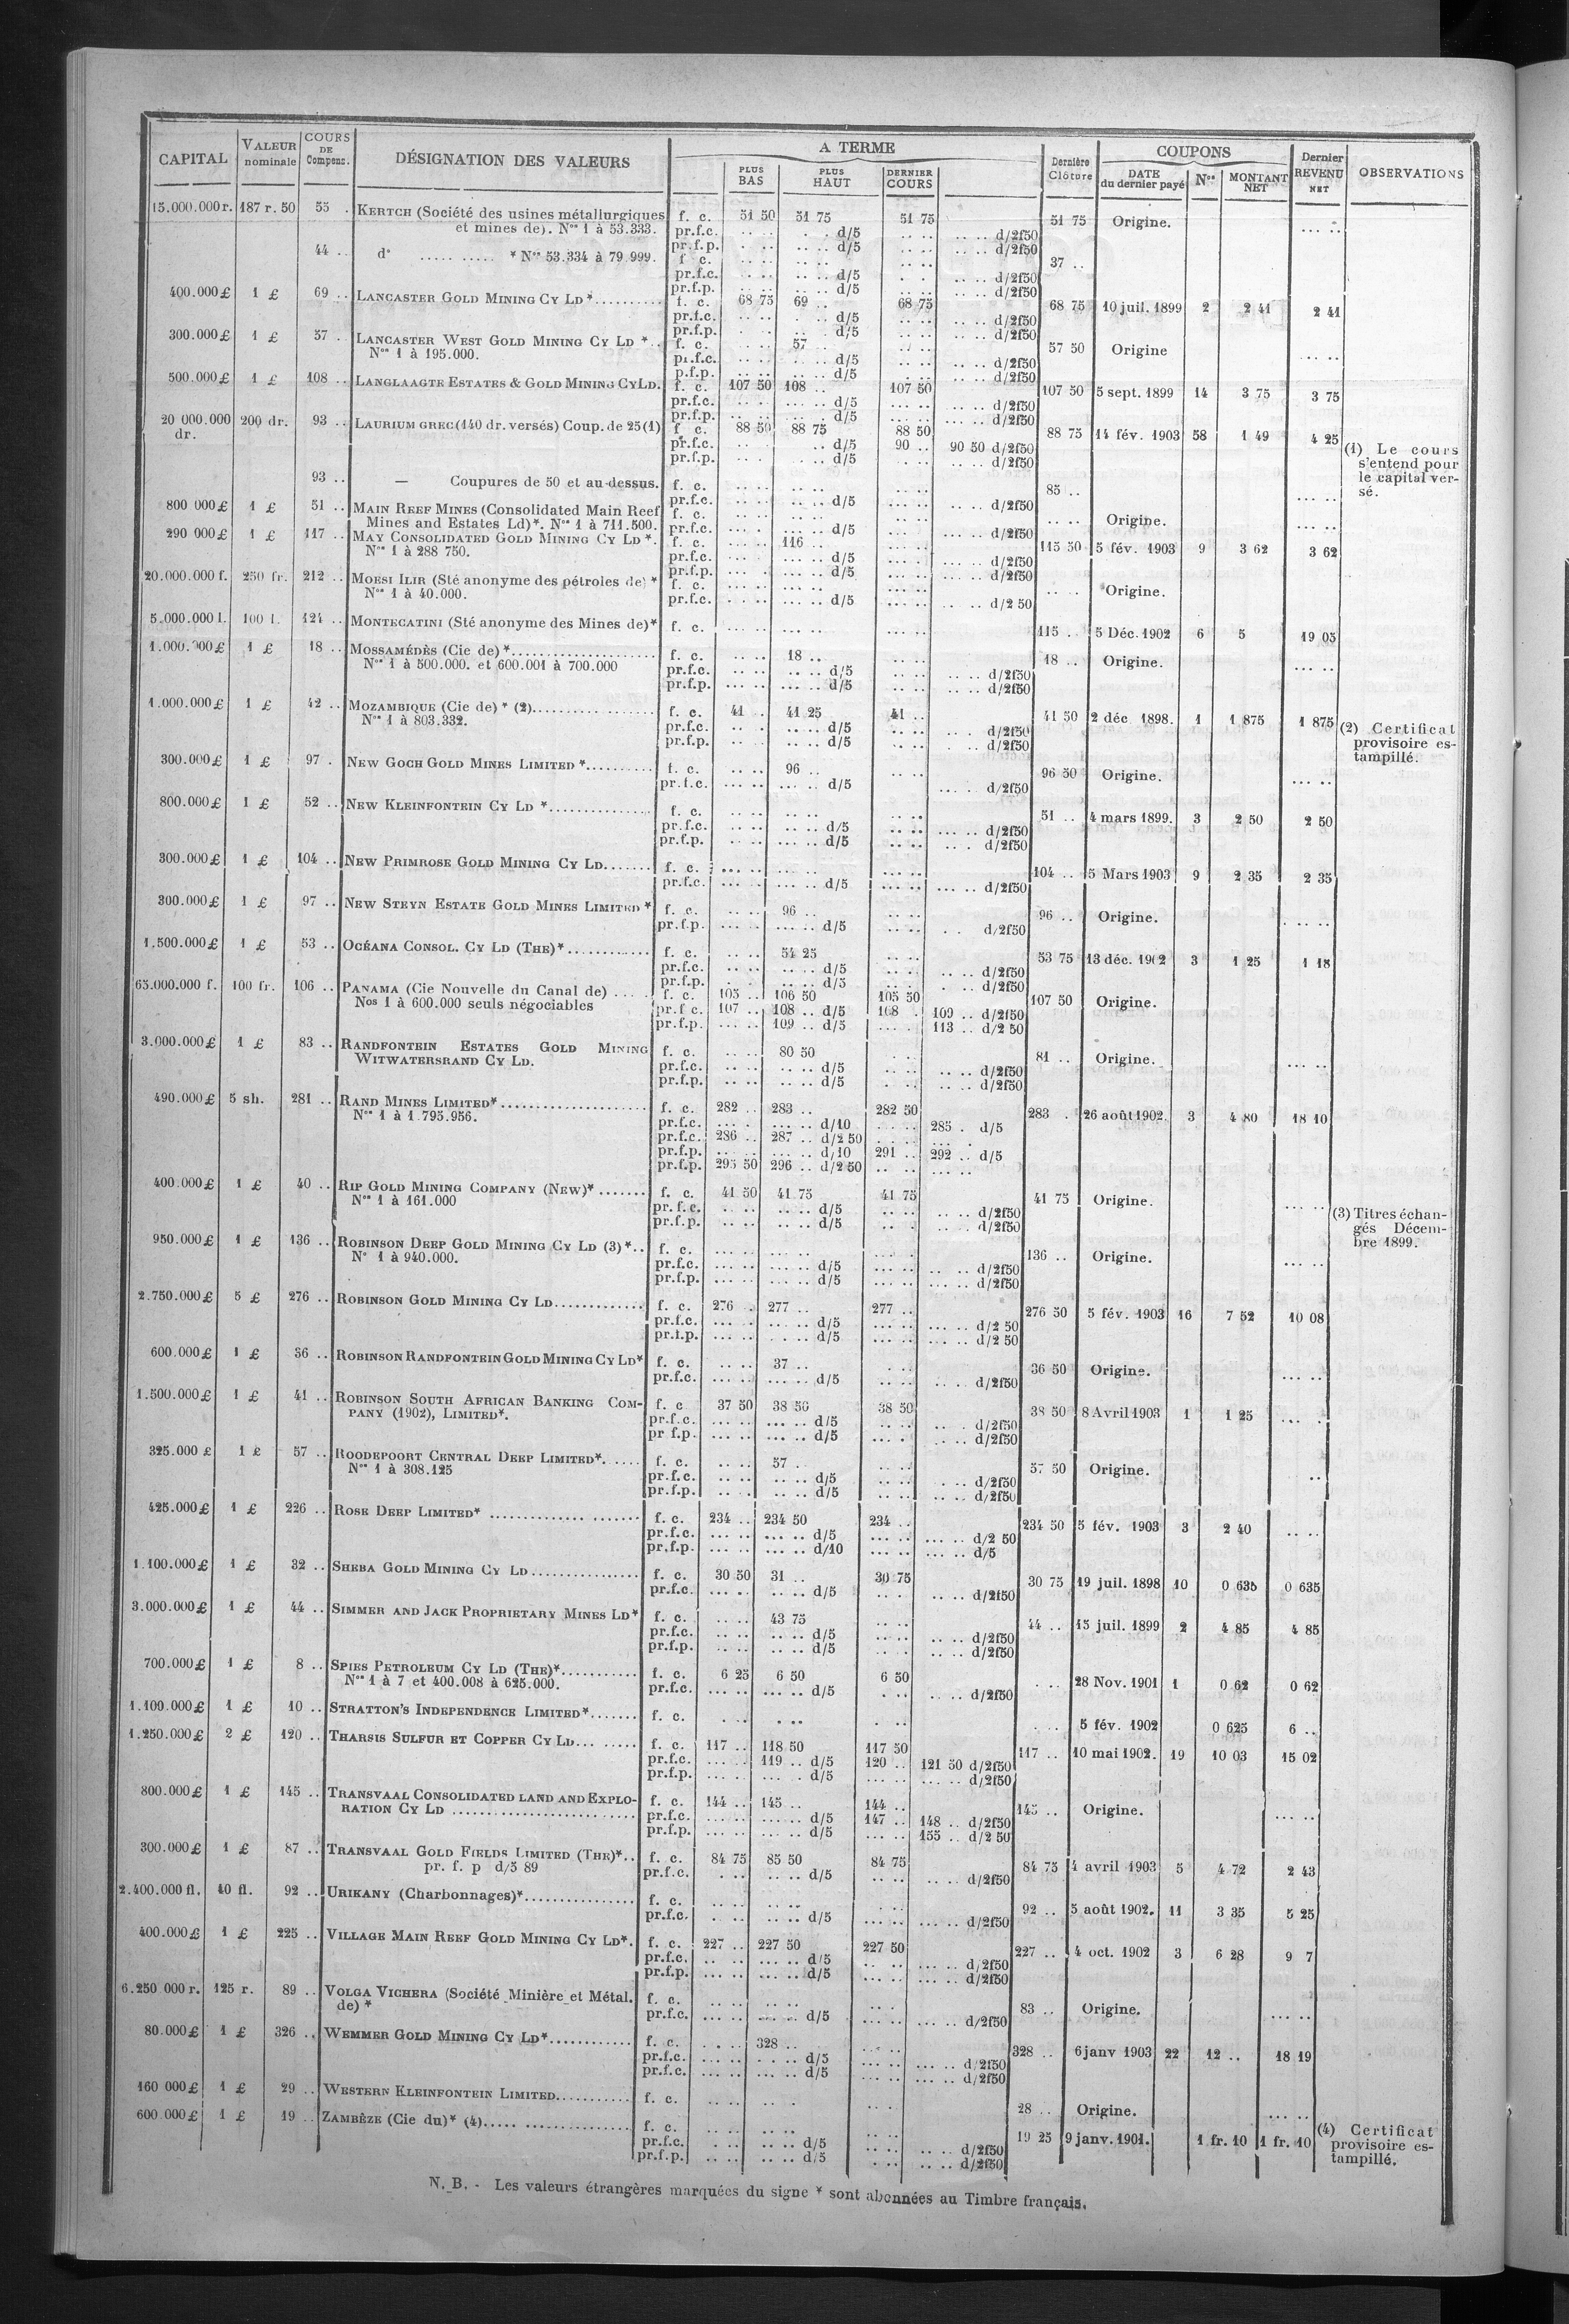 CAPITAL | VALEUR nominale | COURS DE Compens. | DÉSIGNATION DES VALEURS | A TERME | PLUS BAS | PLUS HAUT | DERNIER COURS | Dernière Clôture | COUPONS | DATE du dernier payé | Nos | MONTANT NET | Dernier REVENU NET | OBSERVATIONS
15.000.000 r. 187 r. 50 55 . KERTCH (Société des usines métallurgiques f. c. 51 50 51 75 51 75 51 75 Origine. ... ..
et mines de). Nos 1 à 53.333. pr.f.c. d/5 d/2f50
pr.f.p. d/5 d/2f50
44 .. do ..... ..... * Nos 53.334 à 79.999. f. c. 37 ..
pr.f.c. d/5 d/2f50
pr.f.p. d/5 d/2f50
400.000 £ 1 £ 69 .. LANCASTER GOLD MINING CY LD *.......... f. c. 68 75 69 .. 68 75 68 75 10 juil. 1899 2 2 41 2 41
pr.f.c. d/5 d/2f50
pr.f.p. d/5 d/2f50
300.000 £ 1 £ 57 . LANCASTER WEST GOLD MINING CY LD *.. f. c. 57 .. 57 50 Origine ... ..
Nos 1 à 195.000. pr.f.c. d/5 d/2f50
p.f.p. d/5 d/2f50
500.000 £ 1 £ 108 .. LANGLAAGTE ESTATES & GOLD MINING CY LD. f. c. 107 50 108 .. 107 50 107 50 5 sept. 1899 14 3 75 3 75
pr.f.c. d/5 d/2f50
pr.f.p. d/5 d/2f50
20 000.000 dr. 200 dr. 93 .. LAURIUM GREC (140 dr. versés) Coup. de 25 (1) f. c. 88 50 88 75 88 50 88 75 14 fév. 1903 58 1 49 4 25
pr.f.c. d/5 90 .. 90 50 d/2f50
pr.f.p. d/5 d/2f50
(1) Le cours
s'entend pour
le capital ver-
sé.
93 .. — Coupures de 50 et au-dessus. f. c. 85 .. ... ..
pr.f.c. d/5 d/2f50
800 000 £ 1 £ 51 .. MAIN REEF MINES (Consolidated Main Reef f. c. Origine. ... ..
Mines and Estates Ld)*. Nos 1 à 711.500. pr.f.c. d/5 d/2f50
290 000 £ 1 £ 117 .. MAY CONSOLIDATED GOLD MINING CY LD *. f. c. 116 .. 115 50 5 fév. 1903 9 3 62 3 62
Nos 1 à 288 750. pr.f.c. d/5 d/2f50
pr.f.p. d/5 d/2f50
20.000.000 f. 250 fr. 212 .. MOESI ILIR (Sté anonyme des pétroles de) * f. c. Origine.
Nos 1 à 40.000. pr.f.c. d/5 d/2 50
5.000.000 l. 100 l. 124 .. MONTECATINI (Sté anonyme des Mines de)* f. c. 115 .. 5 Déc. 1902 6 5 19 05
1.000.000 £ 1 £ 18 .. MOSSAMÉDÈS (Cie de) *.................... f. c. 18 .. 18 .. Origine. ... ..
Nos 1 à 500.000. et 600.001 à 700.000 pr.f.c. d/5 d/2f50
pr.f.p. d/5 d/2f50
1.000.000 £ 1 £ 42 .. MOZAMBIQUE (Cie de) * (2)................. f. c. 41 . 41 25 41 .. 41 50 2 déc. 1898. 1 1 875 1 875
Nos 1 à 803.332. pr.f.c. d/5 d/2f50
pr.f.p. d/5 d/2f50
(2) Certificat
provisoire es-
tampillé.
300.000 £ 1 £ 97 . NEW GOCH GOLD MINES LIMITED *.......... f. c. 96 .. 96 50 Origine. ... ..
pr.f.c. d/5 d/2f50
800.000 £ 1 £ 52 .. NEW KLEINFONTEIN CY LD *............... f. c. 51 .. 4 mars 1899. 3 2 50 2 50
pr.f.c. d/5 d/2f50
pr.f.p. d/5 d/2f50
300.000 £ 1 £ 104 .. NEW PRIMROSE GOLD MINING CY LD....... f. c. 104 .. 5 Mars 1903 9 2 35 2 35
pr.f.c. d/5 d/2f50
300.000 £ 1 £ 97 .. NEW STEYN ESTATE GOLD MINES LIMITED * f. c. 96 .. 96 .. Origine. ... ..
pr.f.p. d/5 d/2f50
1.500.000 £ 1 £ 53 .. OCÉANA CONSOL. CY LD (THE)*............ f. c. 54 25 53 75 13 déc. 1902 3 1 25 1 18
pr.f.c. d/5 d/2f50
pr.f.p. d/5 d/2f50
65.000.000 f. 100 fr. 106 .. PANAMA (Cie Nouvelle du Canal de) ..... f. c. 105 .. 106 50 105 50 107 50 Origine.
Nos 1 à 600.000 seuls négociables pr.f c. 107 .. 108 .. d/5 108 . 109 .. d/2f50
pr.f.p. 109 .. d/5 113 .. d/2 50
3.000.000 £ 1 £ 83 .. RANDFONTEIN ESTATES GOLD MINING f. c. 80 50 81 .. Origine. ... ..
WITWATERSRAND CY LD. pr.f.c. d/5 d/2f50
pr.f.p. d/5 d/2f50
490.000 £ 5 sh. 281 .. RAND MINES LIMITED*..................... f. c. 282 .. 283 .. 282 50 283 . 26 août 1902. 3 4 80 18 10
Nos 1 à 1.795.956. pr.f.c. d/10 285 . d/5
pr.f.c. 286 .. 287 .. d/2 50
pr.f.p. d/10 291 .. 292 .. d/5
pr.f.p. 295 50 296 .. d/2 50
400.000 £ 1 £ 40 .. RIP GOLD MINING COMPANY (NEW)* ....... f. c. 41 50 41 75 41 75 41 75 Origine. ... ..
Nos 1 à 161.000 pr.f.c. d/5 d/2f50
pr.f.p. d/5 d/2f50
(3) Titres échan-
gés Décem-
bre 1899.
950.000 £ 1 £ 136 .. ROBINSON DEEP GOLD MINING CY LD (3)*.. f. c. 136 .. Origine. ... ..
No 1 à 940.000. pr.f.c. d/5 d/2f50
pr.f.p. d/5 d/2f50
2.750.000 £ 5 £ 276 .. ROBINSON GOLD MINING CY LD............ f. c. 276 . 277 .. 277 .. 276 50 5 fév. 1903 16 7 52 10 08
pr.f.c. d/5 d/2 50
pr.f.p. d/5 d/2 50
600.000 £ 1 £ 36 .. ROBINSON RANDFONTEIN GOLD MINING CY LD* f. c. 37 .. 36 50 Origine. ... ..
pr.f.c. d/5 d/2f50
1.500.000 £ 1 £ 41 .. ROBINSON SOUTH AFRICAN BANKING COM- f. c 37 50 38 50 38 50 38 50 8 Avril 1903 1 1 25 ... .
PANY (1902), LIMITED*. pr.f.c. d/5 d/2f50
pr f.p. d/5 d/2f50
325.000 £ 1 £ 57 .. ROODEPOORT CENTRAL DEEP LIMITED*...... f. c. 57 .. 57 50 Origine. ..
Nos 1 à 308.125 pr.f.c. d/5 d/2f50
pr.f.p. d/5 d/2f50
425.000 £ 1 £ 226 .. ROSE DEEP LIMITED* .............. ....... f. c. 234 .. 234 50 234 .. 234 50 5 fév. 1903 3 2 40 .. ..
pr.f.c. d/5 d/2 50
pr.f.p. d/10 d/5
1.100.000 £ 1 £ 32 .. SHEBA GOLD MINING CY LD................ f. c. 30 50 31 .. 30 75 30 75 19 juil. 1898 10 0 635 0 635
pr.f.c. d/5 d/2f50
3.000.000 £ 1 £ 44 .. SIMMER AND JACK PROPRIETARY MINES LD* f. c. 43 75 44 .. 15 juil. 1899 2 4 85 4 85
pr.f.c. d/5 d/2f50
pr.f.p. d/5 d/2f50
700.000 £ 1 £ 8 .. SPIES PETROLEUM CY LD (THE)*........... f. c. 6 25 6 50 6 50 28 Nov. 1901 1 0 62 0 62
Nos 1 à 7 et 400.008 à 625.000. pr.f.c. d/5 d/2f50
1.100.000 £ 1 £ 10 .. STRATTON'S INDEPENDENCE LIMITED*....... f. c. 5 fév. 1902 0 625 6 ..
1.250.000 £ 2 £ 120 .. THARSIS SULFUR ET COPPER CY LD... ..... f. c. 117 .. 118 50 117 50 117 .. 10 mai 1902. 19 10 03 15 02
pr.f.c. 119 .. d/5 120 .. 121 50 d/2f50
pr.f.p. d/5 d/2f50
800.000 £ 1 £ 145 .. TRANSVAAL CONSOLIDATED LAND AND EXPLO- f. c. 144 .. 145 .. 144 .. 145 .. Origine. ... ..
RATION CY LD ......................... pr.f.c. d/5 147 .. 148 .. d/2f50
pr.f.p. d/5 155 .. d/2 50
300.000 £ 1 £ 87 .. TRANSVAAL GOLD FIELDS LIMITED (THE)*.. f. c. 84 75 85 50 84 75 84 75 4 avril 1903 5 4 72 2 43
pr. f. p d/5 89 pr.f.c. d/5 d/2f50
2.400.000 fl. 40 fl. 92 .. URIKANY (Charbonnages)*................ f. c. 92 .. 5 août 1902. 11 3 35 5 25
pr.f.c. d/5 d/2f50
400.000 £ 1 £ 225 .. VILLAGE MAIN REEF GOLD MINING CY LD*. f. c. 227 .. 227 50 227 50 227 .. 4 oct. 1902 3 6 28 9 7
pr.f.c. d/5 d/2f50
pr.f.p. d/5 d/2f50
6.250 000 r. 125 r. 89 .. VOLGA VICHERA (Société Minière et Métal. f. c. 83 .. Origine. ... ..
de) * pr.f.c. d/5 d/2f50
80.000 £ 1 £ 326 .. WEMMER GOLD MINING CY LD*............ f. c. 328 .. 328 .. 6 janv 1903 22 12 .. 18 19
pr.f.c. d/5 d/2f50
pr.f.c. d/5 d/2f50
160 000 £ 1 £ 29 .. WESTERN KLEINFONTEIN LIMITED........... f. c. 28 .. Origine. ... ..
600.000 £ 1 £ 19 .. ZAMBÈZE (Cie du)* (4)..... ............... f. c. 19 25 9 janv. 1901. 1 fr. 10 1 fr. 10
pr.f.c. d/5 d/2f50
pr.f.p. d/5 d/2f50
(4) Certificat
provisoire es-
tampillé.
N. B. - Les valeurs étrangères marquées du signe * sont abonnées au Timbre français.